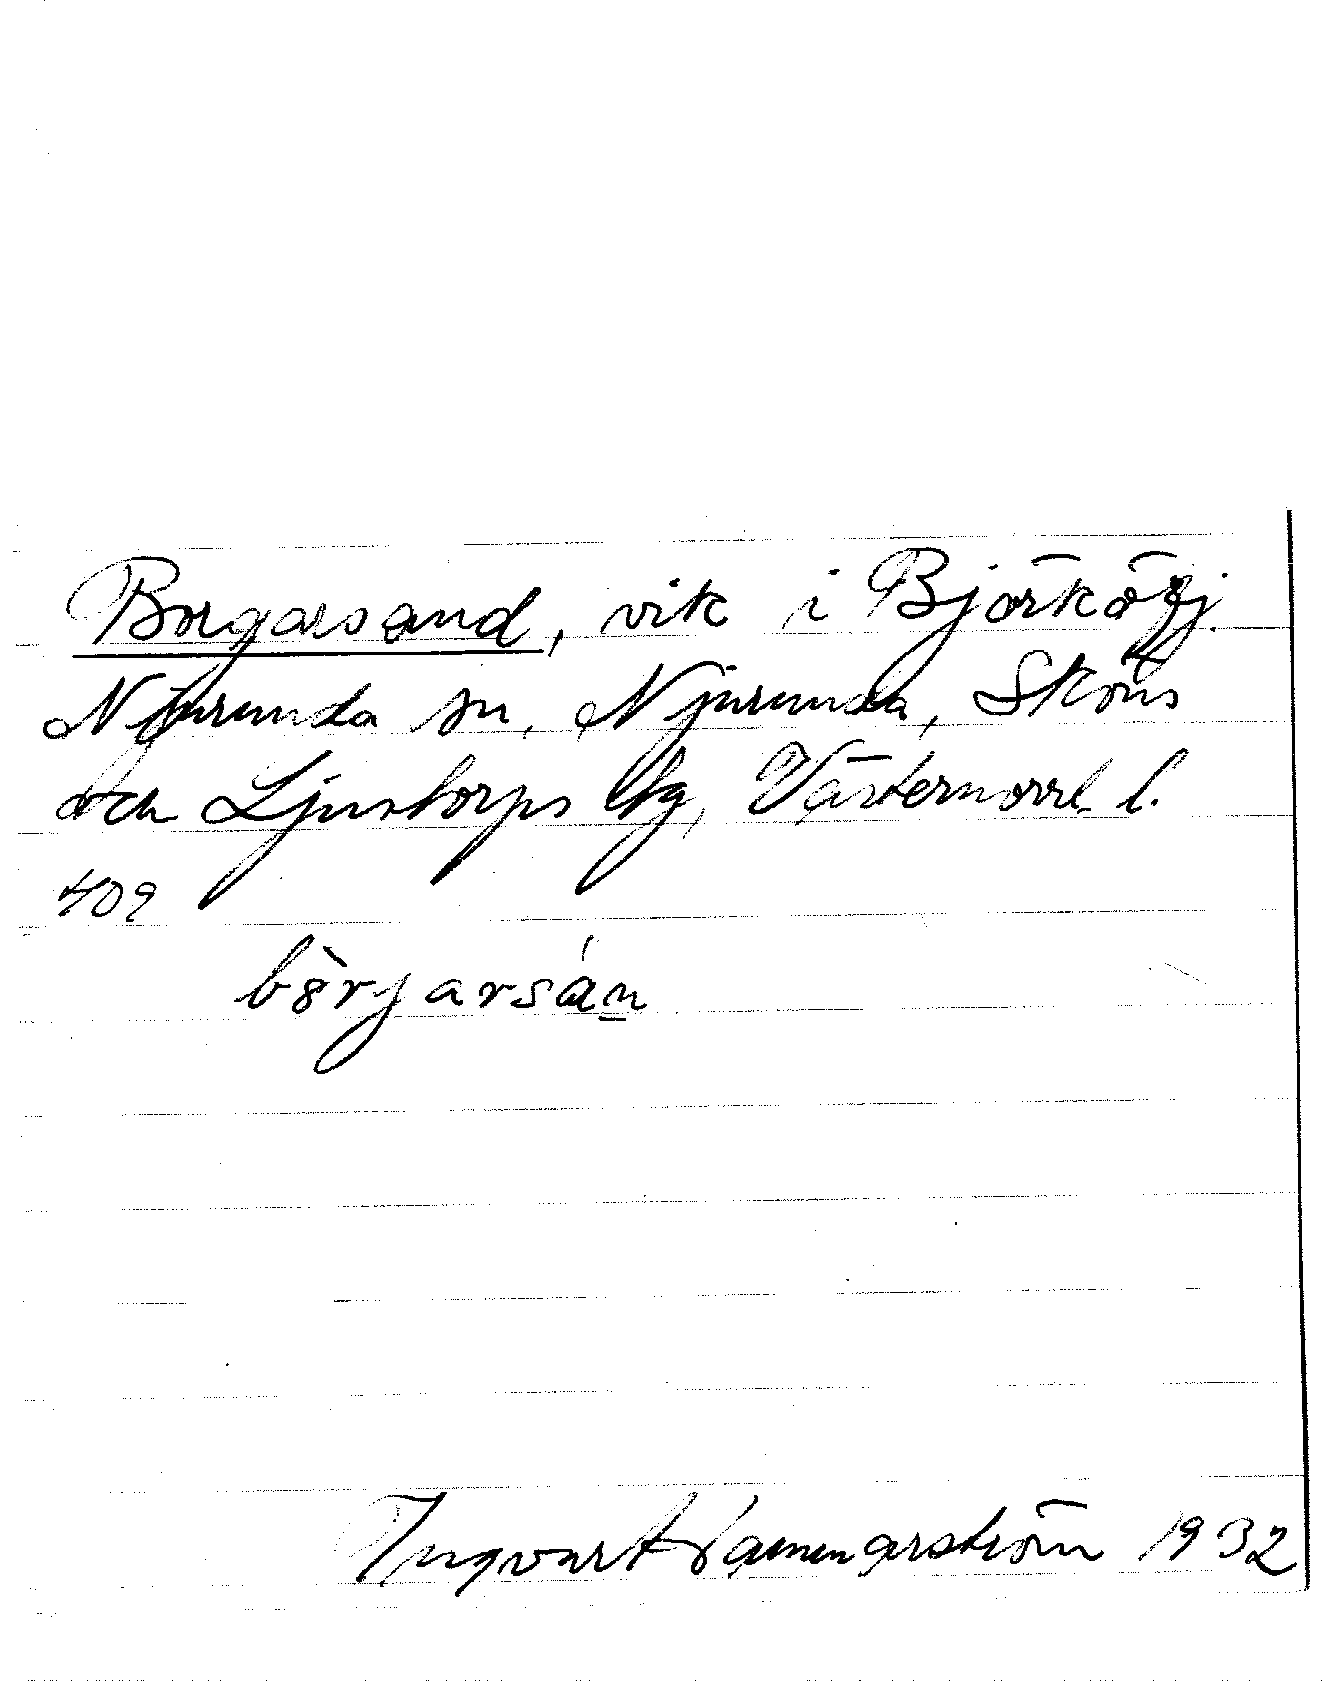 Borgarsand, vik i Björköfj.
Njurunda sn, Njurunda, Sköns
och Ljustorps tg, Västernorrl l.
409
bo̊rjarsán
Ingvart Hammarström 1932